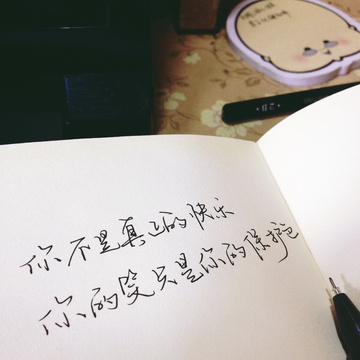 你不是真正的快乐
你的笑只是你的保护色
2B